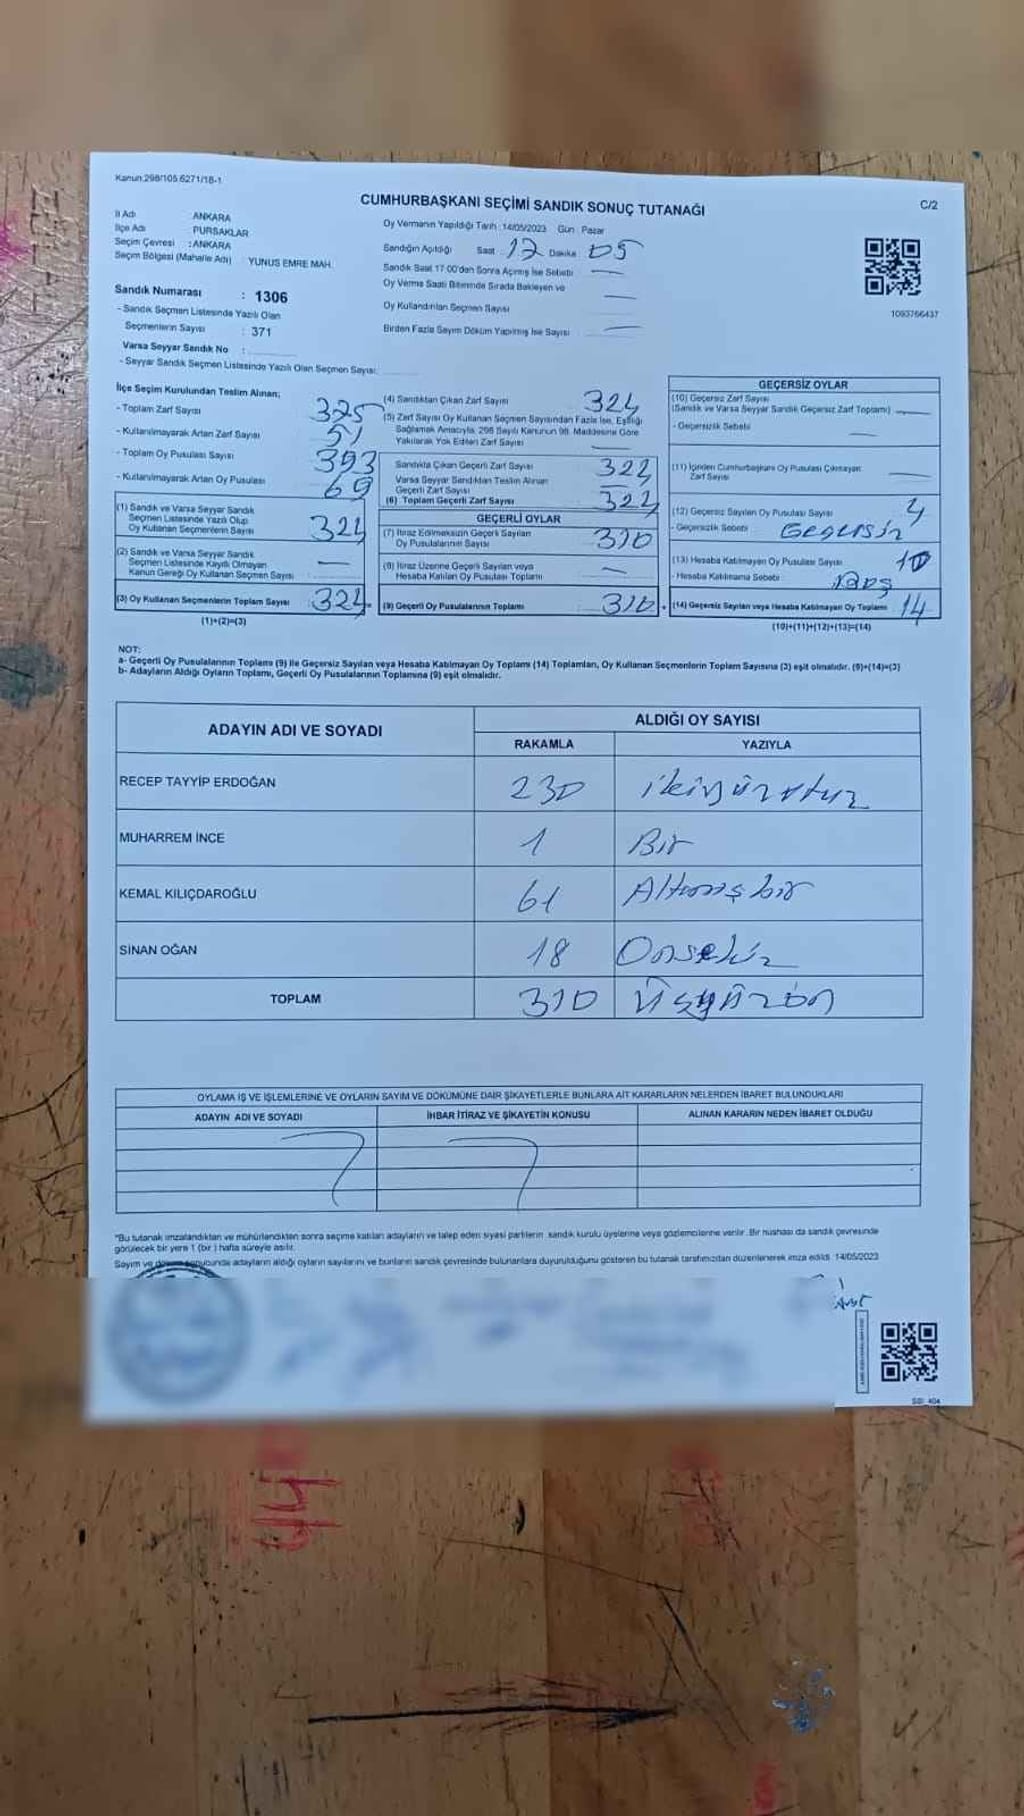 Kanun:298/105.6271/18-1
CUMHURBAŞKANI SEÇİMİ SANDIK SONUÇ TUTANAĞI
C/2
İl Adı : ANKARA
İlçe Adı : PURSAKLAR
Seçim Çevresi : ANKARA
Seçim Bölgesi (Mahalle Adı) : YUNUS EMRE MAH.
Sandık Numarası : 1306
- Sandık Seçmen Listesinde Yazılı Olan
Seçmenlerin Sayısı : 371
Varsa Seyyar Sandık No :
- Seyyar Sandık Seçmen Listesinde Yazılı Olan Seçmen Sayısı:
Oy Vermenin Yapıldığı Tarih :14/05/2023 Gün : Pazar
Sandığın Açıldığı Saat : 17 Dakika : 05
Sandık Saat 17:00'den Sonra Açılmış İse Sebebi —
Oy Verme Saati Bitiminde Sırada Bekleyen ve
Oy Kullandırılan Seçmen Sayısı —
Birden Fazla Sayım Döküm Yapılmış İse Sayısı —
1093766437
İlçe Seçim Kurulundan Teslim Alınan;
- Toplam Zarf Sayısı 375
- Kullanılmayarak Artan Zarf Sayısı 51
- Toplam Oy Pusulası Sayısı 393
- Kullanılmayarak Artan Oy Pusulası 69
(1) Sandık ve Varsa Seyyar Sandık
Seçmen Listesinde Yazılı Olup
Oy Kullanan Seçmenlerin Sayısı 324
(2) Sandık ve Varsa Seyyar Sandık
Seçmen Listesinde Kayıtlı Olmayan
Kanun Gereği Oy Kullanan Seçmen Sayısı —
(3) Oy Kullanan Seçmenlerin Toplam Sayısı 324
(1)+(2)=(3)
(4) Sandıktan Çıkan Zarf Sayısı 324
(5) Zarf Sayısı Oy Kullanan Seçmen Sayısından Fazla İse, Eşitliği
Sağlamak Amacıyla, 298 Sayılı Kanunun 98. Maddesine Göre
Yakılarak Yok Edilen Zarf Sayısı —
Sandıkta Çıkan Geçerli Zarf Sayısı 324
Varsa Seyyar Sandıktan Teslim Alınan
Geçerli Zarf Sayısı
(6) Toplam Geçerli Zarf Sayısı 324
GEÇERLİ OYLAR
(7) İtiraz Edilmeksizin Geçerli Sayılan
Oy Pusulalarının Sayısı 310
(8) İtiraz Üzerine Geçerli Sayılan veya
Hesaba Katılan Oy Pusulası Toplamı —
(9) Geçerli Oy Pusulalarının Toplamı 310
GEÇERSİZ OYLAR
(10) Geçersiz Zarf Sayısı
(Sandık ve Varsa Seyyar Sandık Geçersiz Zarf Toplamı) —
- Geçersizlik Sebebi —
(11) İçinden Cumhurbaşkanı Oy Pusulası Çıkmayan
Zarf Sayısı —
(12) Geçersiz Sayılan Oy Pusulası Sayısı 4
- Geçersizlik Sebebi Geçersiz
(13) Hesaba Katılmayan Oy Pusulası Sayısı 10
- Hesaba Katılmama Sebebi
(14) Geçersiz Sayılan veya Hesaba Katılmayan Oy Toplamı 14
(10)+(11)+(12)+(13)=(14)
NOT:
a- Geçerli Oy Pusulalarının Toplamı (9) ile Geçersiz Sayılan veya Hesaba Katılmayan Oy Toplamı (14) Toplamları, Oy Kullanan Seçmenlerin Toplam Sayısına (3) eşit olmalıdır. (9)+(14)=(3)
b- Adayların Aldığı Oyların Toplamı, Geçerli Oy Pusulalarının Toplamına (9) eşit olmalıdır.
ADAYIN ADI VE SOYADI
ALDIĞI OY SAYISI
RAKAMLA YAZIYLA
RECEP TAYYİP ERDOĞAN 230 ikiyüzotuz
MUHARREM İNCE 1 Bir
KEMAL KILIÇDAROĞLU 61 Altmışbir
SİNAN OĞAN 18 Onsekiz
TOPLAM 310 Üçyüzon
OYLAMA İŞ VE İŞLEMLERİNE VE OYLARIN SAYIM VE DÖKÜMÜNE DAİR ŞİKAYETLERLE BUNLARA AİT KARARLARIN NELERDEN İBARET BULUNDUKLARI
ADAYIN ADI VE SOYADI İHBAR İTİRAZ VE ŞİKAYETİN KONUSU ALINAN KARARIN NEDEN İBARET OLDUĞU
*Bu tutanak imzalandıktan ve mühürlendikten sonra seçime katılan adayların ve talep eden siyasi partilerin sandık kurulu üyelerine veya gözlemcilerine verilir. Bir nüshası da sandık çevresinde
görülecek bir yere 1 (bir ) hafta süreyle asılır.
Sayım ve döküm sonucunda adayların aldığı oyların sayılarını ve bunların sandık çevresinde bulunanlara duyurulduğunu gösteren bu tutanak tarafımızdan düzenlenerek imza edildi. 14/05/2023